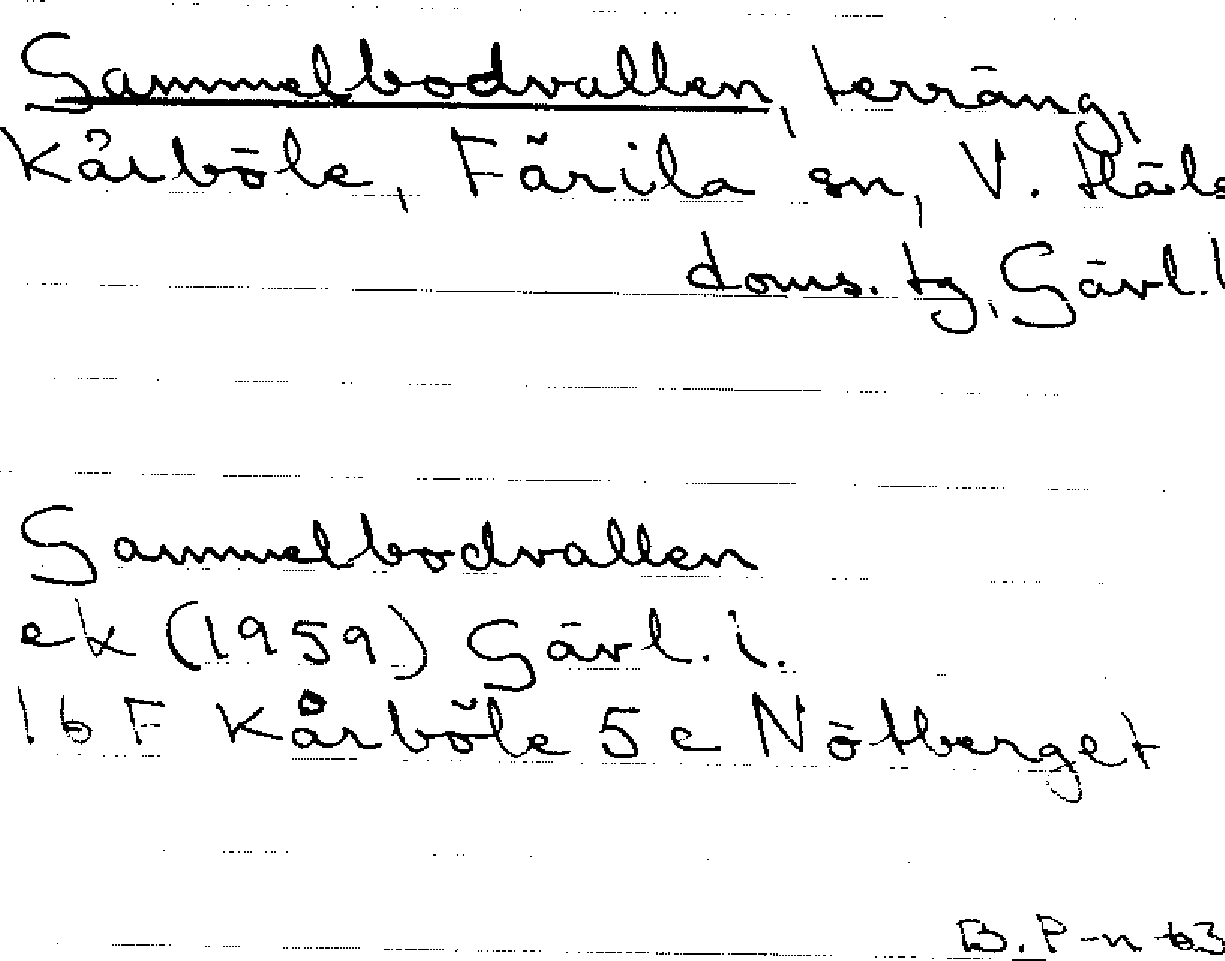 Gammelbodvallen, terräng,
Kårböle, Färila sn, V. Häls
doms. tg, Gävl. l
Gammelbodvallen
ek (1959) Gävl. l.
16 F Kårböle 5 c Nötberget
B. P-n 63